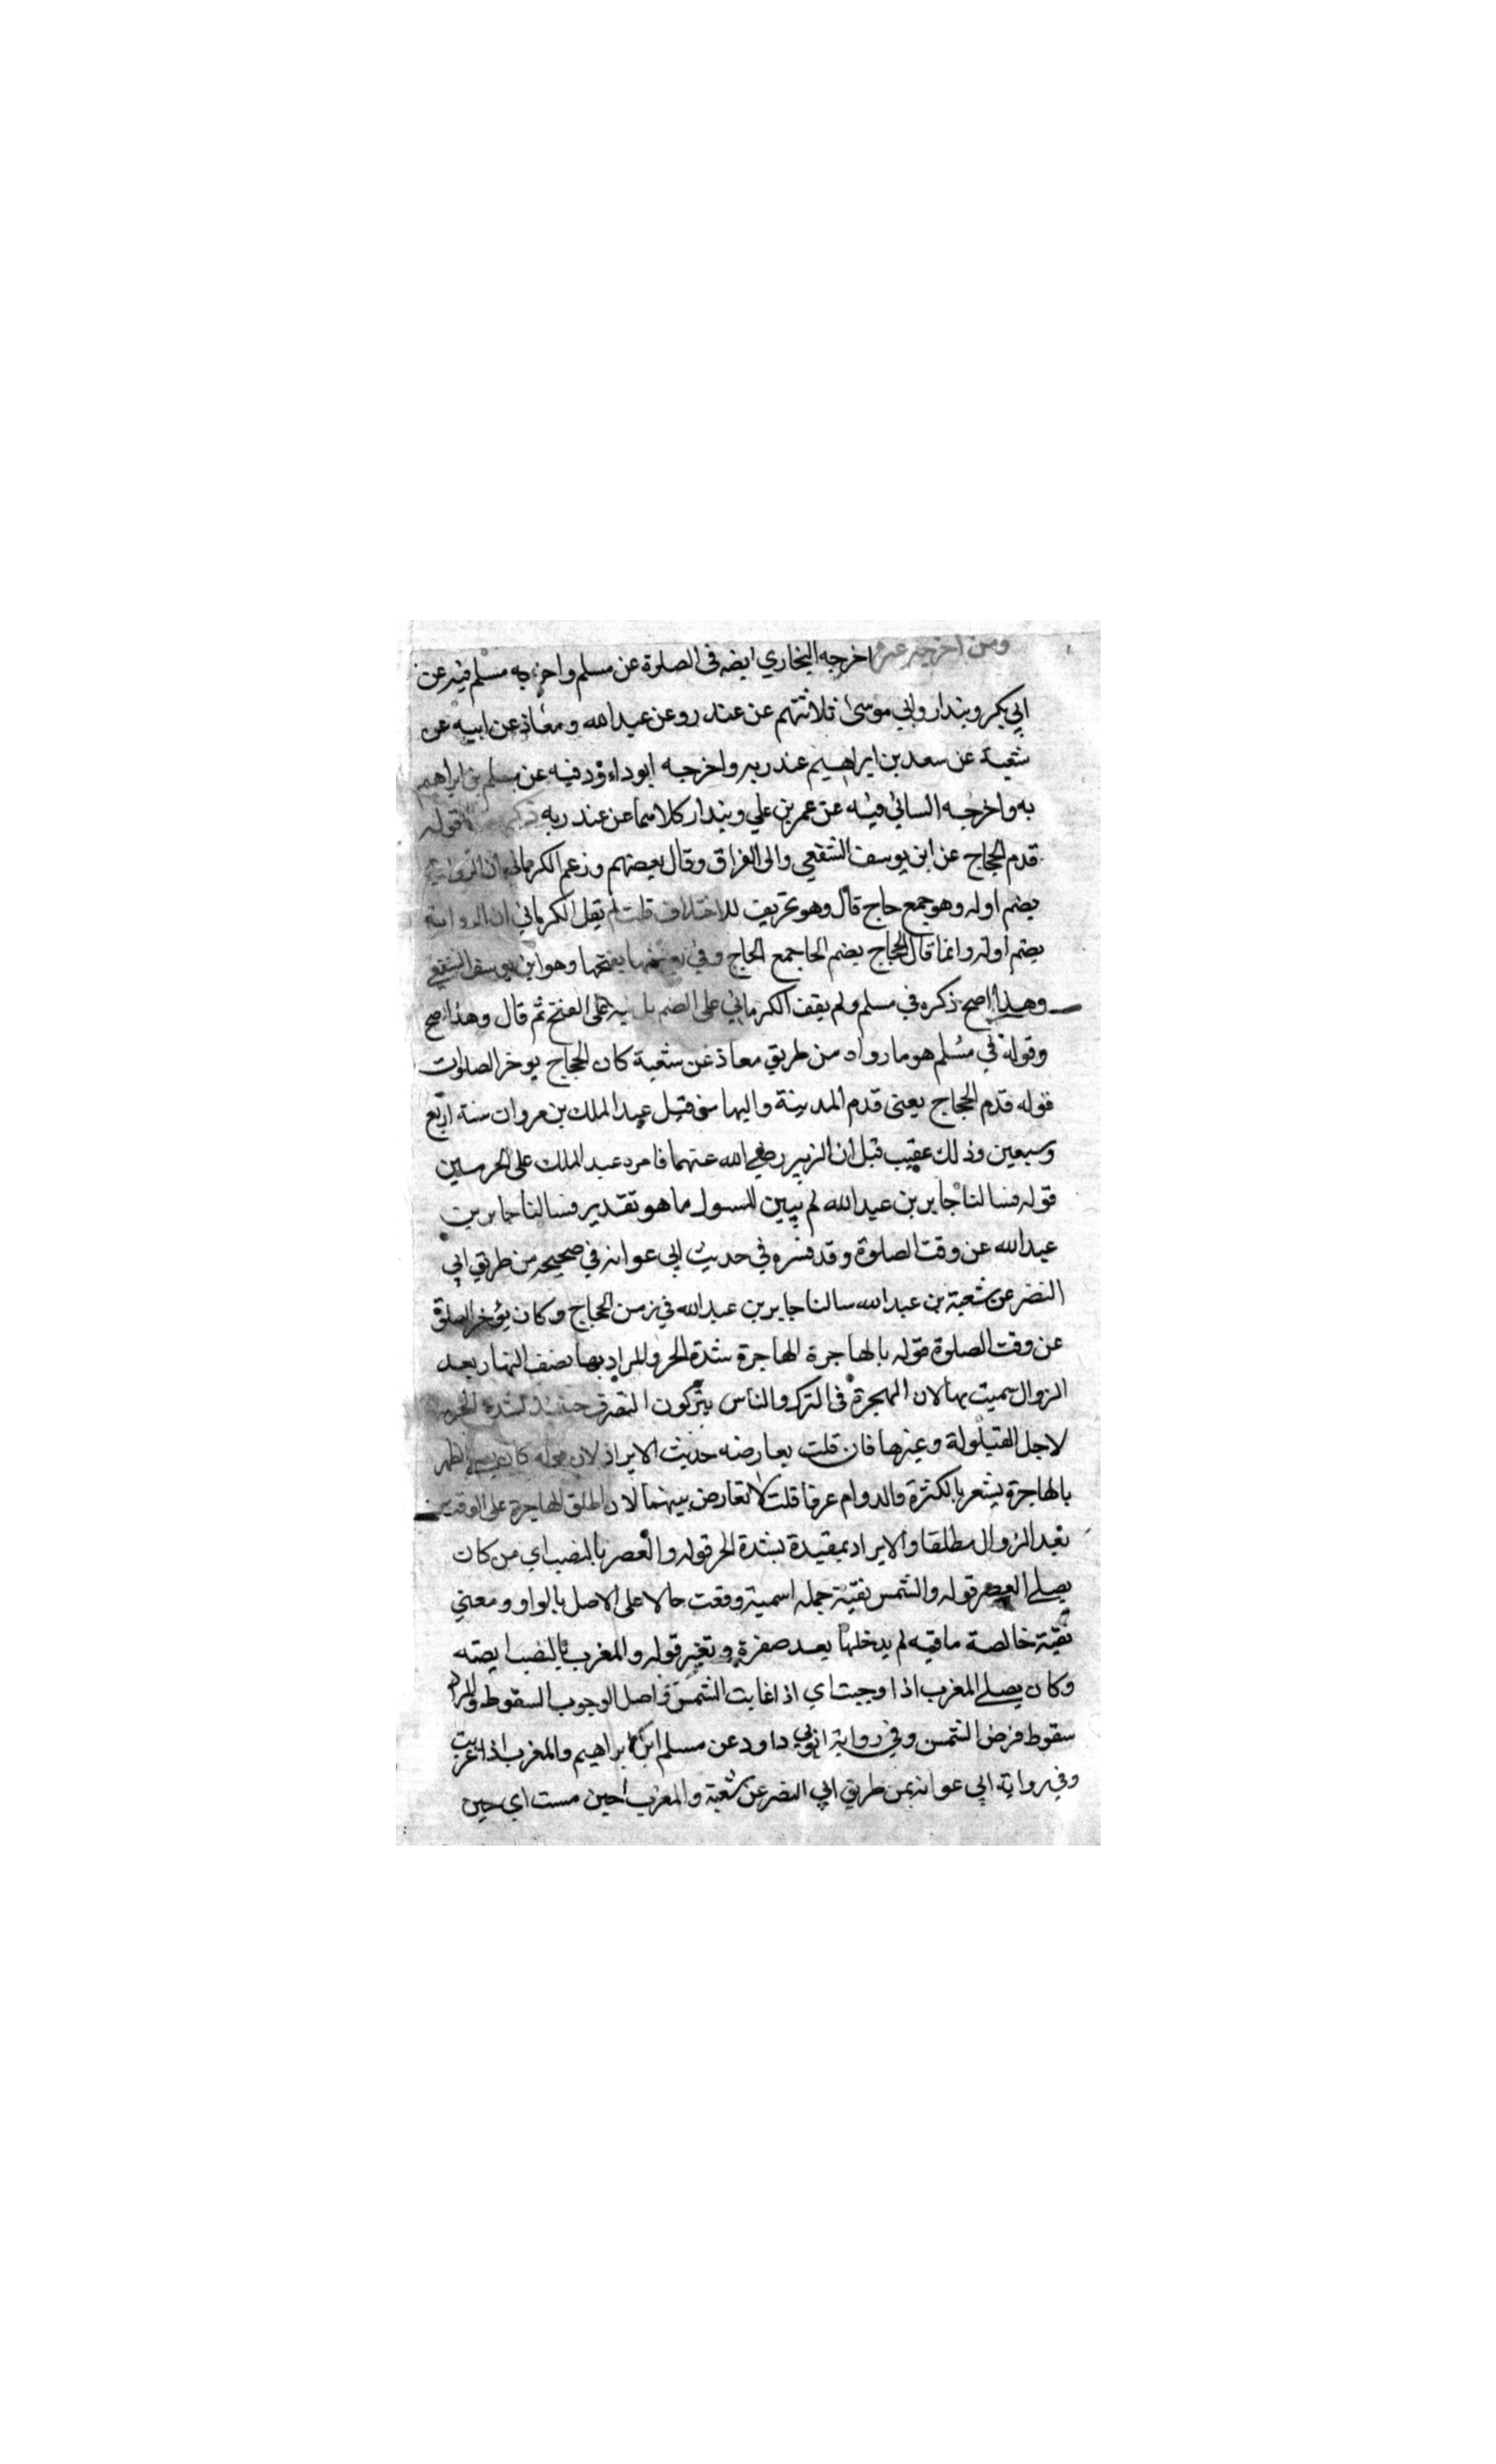 ومن اخرجه غيره اخرجه البخاري ايضه فى الصلوة عن مسلم واخرجه مسلم فيه عن
ابي بكر وبندار وابي موسى ثلاثتهم عن عندر وعن عبد الله ومعاذ عن ابيه عن
شعبة عن سعد بن ابراهيم عندر به واخرجه ابو داوٗد فيه عن مسلم بن ابراهيم
به واخرجه النسائي فيه عن عمر بن علي وبندار كلاهما عن عندر به ذكر قوله
قدم الحجاج عن ابن يوسف الثقفي والى العراق وقال بعضهم وزعم الكرماني ان الرواية
بضم اوله وهو جمع حاج قال وهو تحريف للاختلاف قلت لم يقل الكرماني ان الرواية
بضم اوله وانما قال الحجاج بضم الحا جمع الحاج وفي بعضها بفتحها وهو ابن يوسف الثقفي
وهذا اصح ذكره في مسلم ولم يقف الكرماني على الضم بل نبه على الفتح ثم قال وهذا اصح
وقوله في مسلم هو ما رواه من طريق معاذ عن شعبة كان الحجاج يوخر الصلوات
قوله قدم الحجاج يعنى قدم المدينة واليها من قبل عبد الملك بن مروان سنة اربع
وسبعين وذلك عقيب قبل ان الزبير رضي الله عنهما فامره عبد الملك على الحرمين
قوله فسالنا جابر بن عبد الله لم يبين المسول ما هو تقدير فسالنا جابر بن
عبد الله عن وقت الصلوة وقد فسره في حديث ابي عوانه في صحيحه من طريق ابي
النضر عن شعبة بن عبد الله سالنا جابر بن عبد الله في زمن الحجاج وكان يؤخر الصلوة
عن وقت الصلوة قوله بالهاجرة الهاجرة شدة الحر والمراد بها نصف النهار بعد
الزوال سميت بها لان الهجرة في الترك والناس يتركون التصرف حينئذ لشدة الحر
لاجل القيلولة وغيرها فان قلت يعارضه حديث الابراد لان قوله كان يصلي الظهر
بالهاجرة يشعر بالكثرة والدوام عرفا قلت لا تعارض بينهما لان اطلق الهاجرة على الوقت من
بعد الزوال مطلقا والابراد بمقيدة بشدة الحر قوله والعصر بالنصب اي من كان
يصلى العصر قوله والشمس نقية جمله اسمية وقعت حالا على الاصل بالواو ومعنى
نقية خالصة صافيه لم يدخلها بعد صفرة وتغير قوله والمغرب بالنصب ايضه
وكان يصلى المغرب اذا وجبت اي اذا غابت الشمس واصل الوجوب السقوط والمراد
سقوط فرض الشمس وفي رواية ابي داود عن مسلم ابن ابراهيم والمغرب اذا غربت
وفي رواية ابي عوانه من طريق ابي النضر عن شعبة والمغرب احين مست اي حين